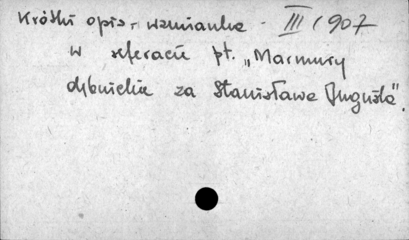 Krótki opis - wzmianka - III/1907
w referacie pt. „Marmury
dębnickie za Stanisława Augusta”.